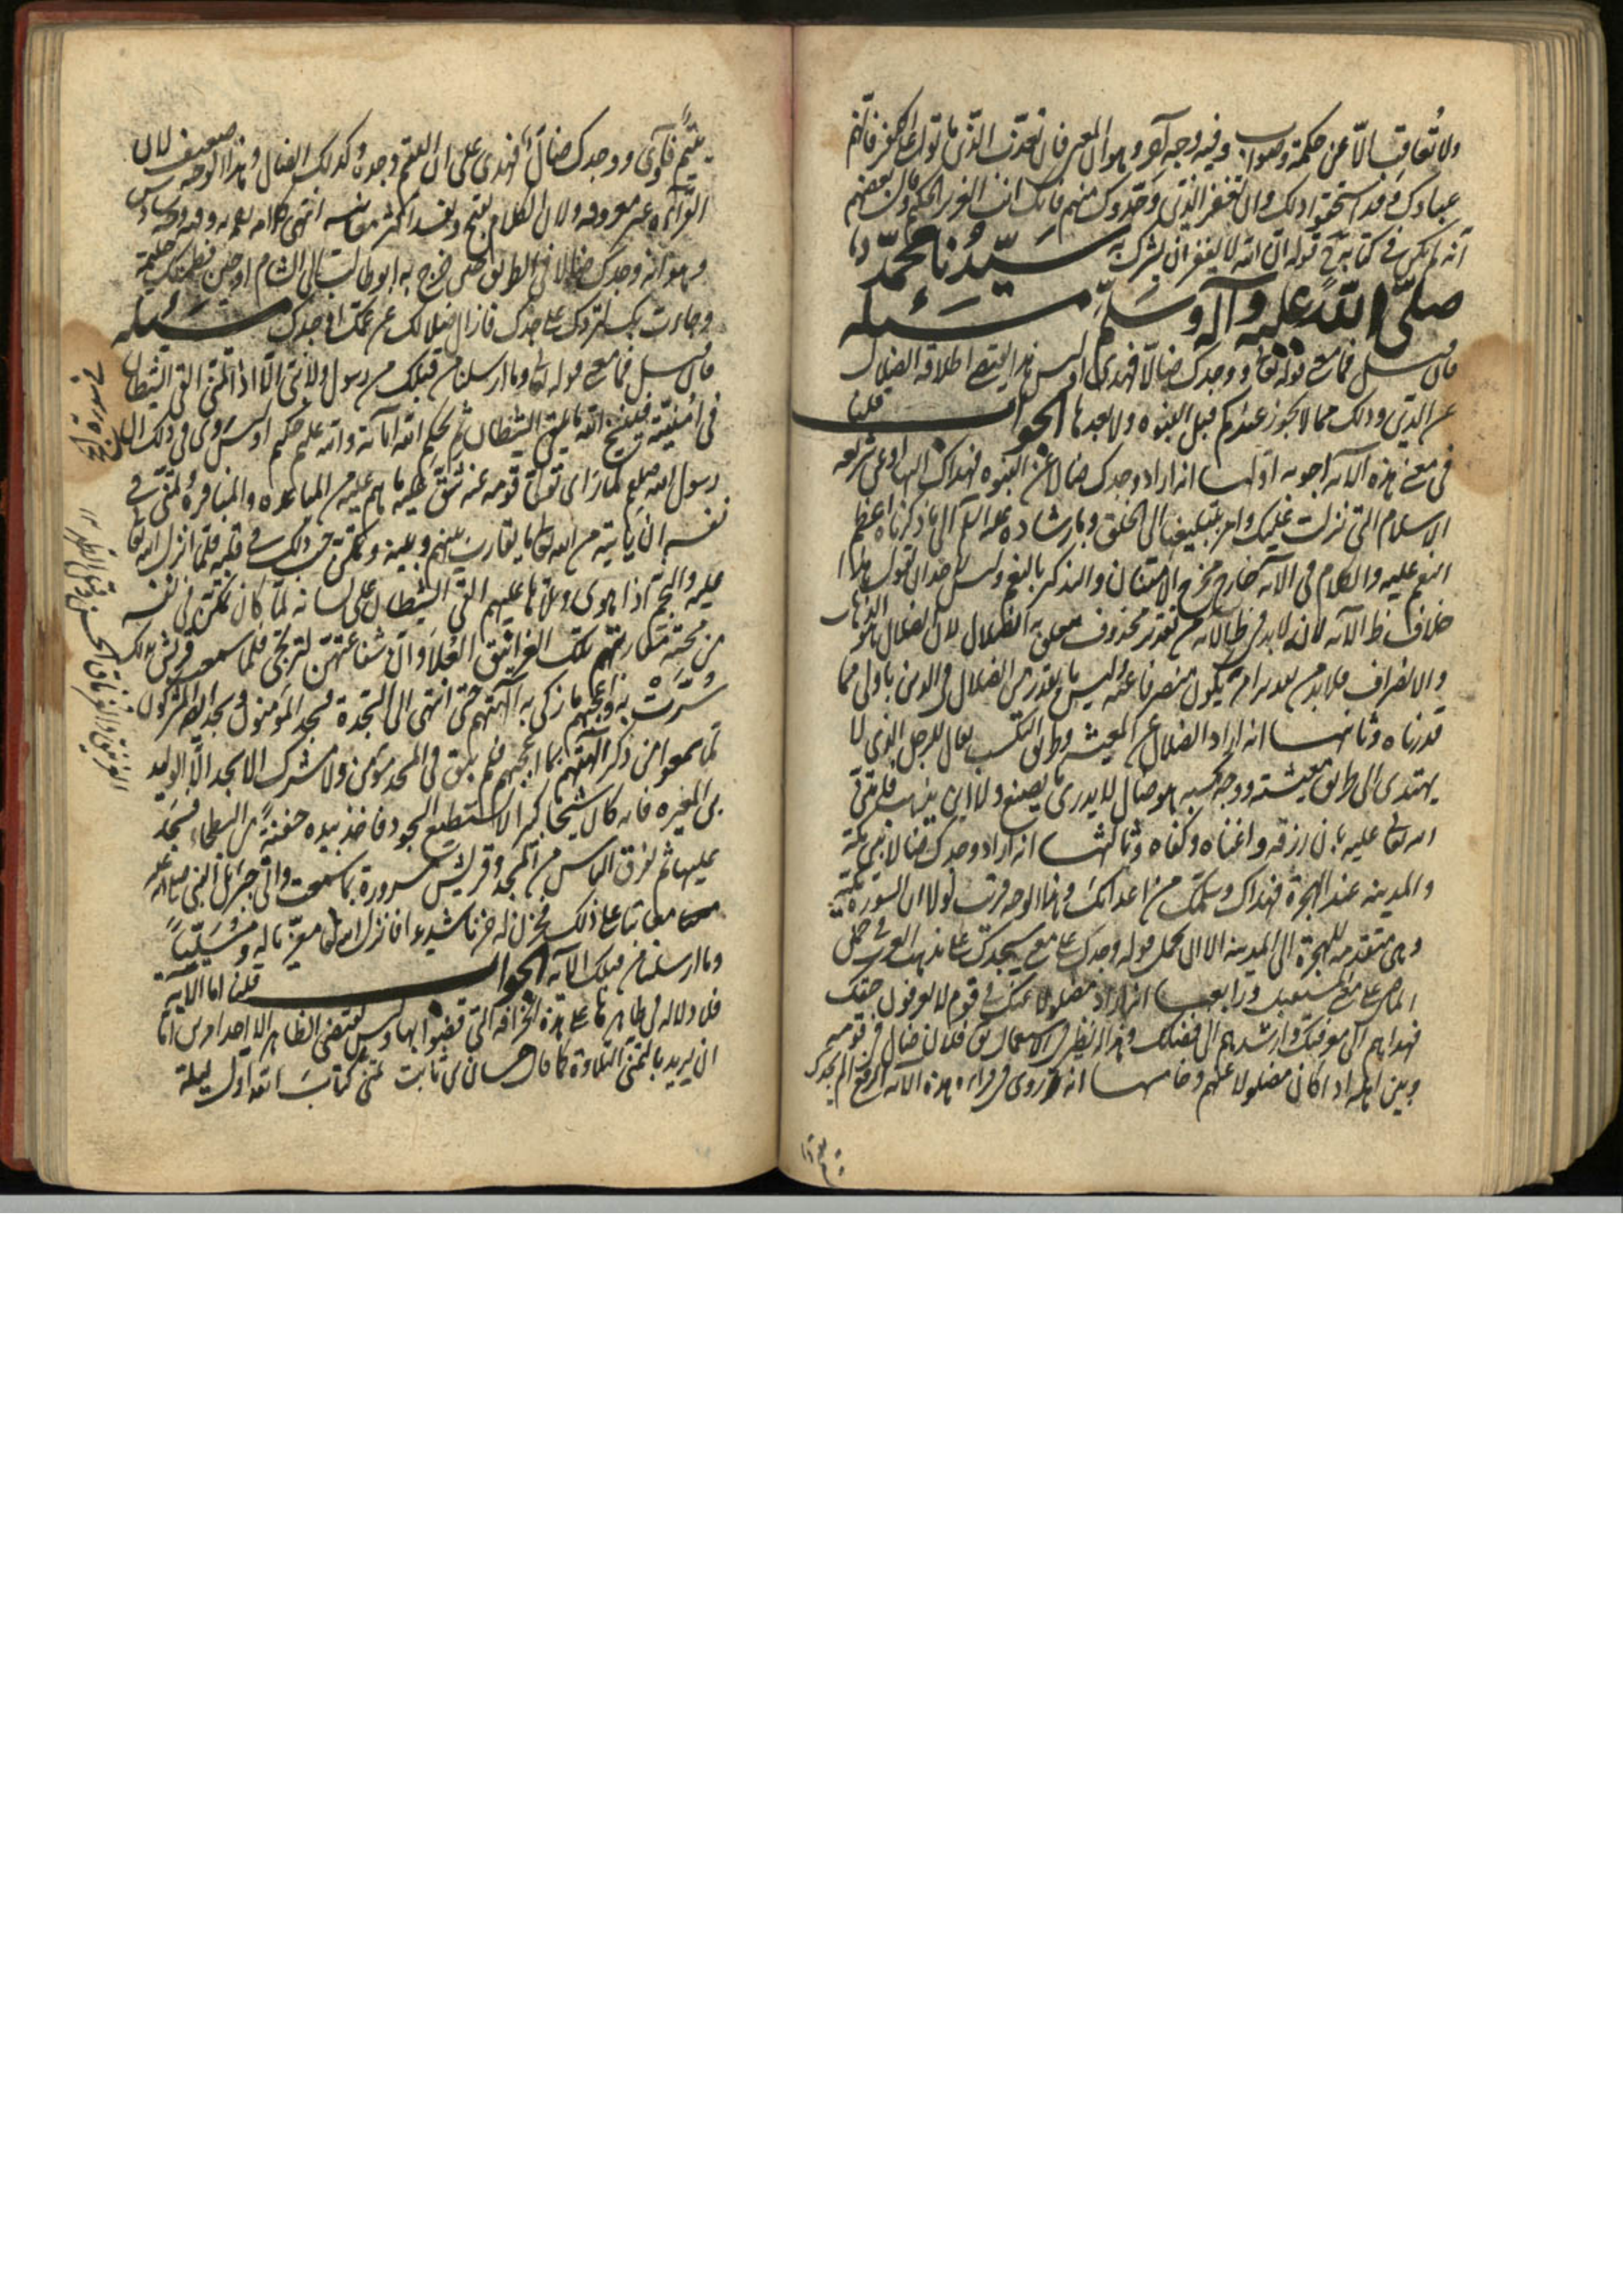 ولا تعاقب الا عن حكمة وصواب وفيه وجه آخر وهو ان المعنى فان تعذب الذين ماتوا على الكفر فانهم
عبادك وقد استحقوا ذلك وان تغفر للذين وحدوك منهم فانك انت العزيز الحكيم وان بعضهم
انه لم يكن في كتابه قوله ان الله لا يغفر ان يشرك به سيدنا محمد
صلى الله عليه وآله وسلم مسئلة
فان سئل فما معنى قوله تعالى ووجدك ضالا فهدى او ليس هذا يقتضي اطلاقه الضلال
عن الدين وذلك مما لا يجوز عندكم قبل النبوة ولا بعدها الجواب قلنا
في معنى هذه الآية اجوبة اولها انه اراد وجدك ضالا عن النبوة فهداك اليها او عن شريعة
الاسلام التي نزلت عليك وامر بتبليغها الى الخلق وبارشاده عليه السلم الى ما ذكرناه اعظم
النعم عليه والكلام في الآية خارج مخرج الامتنان والتذكير بالنعم وليس لاحد ان يقول هذا
خلاف ظ الآية لانه لا بد في ظ الآية من تقدير محذوف يتعلق به الضلال لان الضلال هو الذهاب
والانصراف فلا بد من تقدير امر يكون منصرفا عنه وليس ما يقدر من الضلال في الدين باولى مما
قدرناه وثانيها انه اراد الضلال عن المعيشة وطريق التكسب يقال للرجل الذي لا
يهتدى الى طريق معيشته ووجه كسبه هو ضال لا يدرى ما يصنع ولا اين يذهب فامتن
الله تعالى عليه بان رزقه واغناه وكفاه وثالثها انه اراد وجدك ضالا بين مكة
والمدينة عند الهجرة فهداك وسلمك من اعدائك وهذا الوجه قريب لولا ان السورة مكية
وهي متقدمة للهجرة الى المدينة الا ان يحمل قوله وجدك على معنى سيجدك على مذهب العرب في حمل
الماضي على معنى المستقبل ورابعها انه اراد مضلولا عنك في قوم لا يعرفون حقك
فهداهم الى معرفتك وارشدهم الى فضلك وهذا له نظير في الاستعمال يق فلان ضال في قومه
وبين اهله اذا كان مضلولا عنهم وخامسها انه روى في قراءة هذه الآية الرفع الم يجدك
يتيم فآوى ووجدك ضال فهدى على ان اليتيم وجده وكذلك الضال وهذا الوجه ضعيف لان
القراءة غير معروفة ولان الكلام يقبح ويفسد اكثر معانيه انتهى كلامه
وهو انه وجدك ضالا في الطريق حين خرج به ابو طالب الى الشام او حين فطمتك حليمة
وجاءت بك لتردك على جدك فازال ضلالك عن عمك او جدك مسئلة
فان سئل فما معنى قوله تعالى وما ارسلنا من قبلك من رسول ولا نبي الا اذا تمنى القى الشيطان
في امنيته فينسخ الله ما يلقى الشيطان ثم يحكم الله آياته والله عليم حكيم او ليس روى في ذلك ان
رسول الله صلعم لما رأى تولى قومه عنه شق عليه ما هم عليه من المباعدة والمنافرة تمنى في
نفسه ان ياتيه من الله تعالى ما يقارب بينهم وبينه وتمكن حب ذلك في قلبه فلما انزل الله تعالى
عليه والنجم اذا هوى وتلاها عليهم القى الشيطان على لسانه لما كان تمكن في نفسه
من محبة مقاربتهم تلك الغرانيق العلا وان شفاعتهن لترتجى فلما سمعت قريش ذلك
سرت به واعجبهم ما زكى به آلهتهم حتى انتهى الى السجدة فسجد المؤمنون وسجد ايضا المشركون
لما سمعوا من ذكر آلهتهم بما اعجبهم فلم يبق في المسجد مؤمن ولا مشرك الا سجد الا الوليد
بن المغيرة فانه كان شيخا كبيرا لا يستطيع السجود فاخذ بيده حفنة من البطحاء فسجد
عليها ثم تفرق الناس من المسجد وقريش مسرورة بما سمعت واتى جبرئيل النبي صلى الله عليه
معاتبا على ذلك فحزن له حزنا شديدا فانزل الله تعالى معزيا له ومسليا
وما ارسلنا من قبلك الآية الجواب قلنا اما الآية
فلا دلالة في ظاهرها على هذه الخرافة التي قصوا بها وليس يقتضى الظاهر الا احد امرين اما
ان يريد بالتمنى التلاوة كما قال حسان بن ثابت تمنى كتاب الله اول ليلة
في سورة الحج